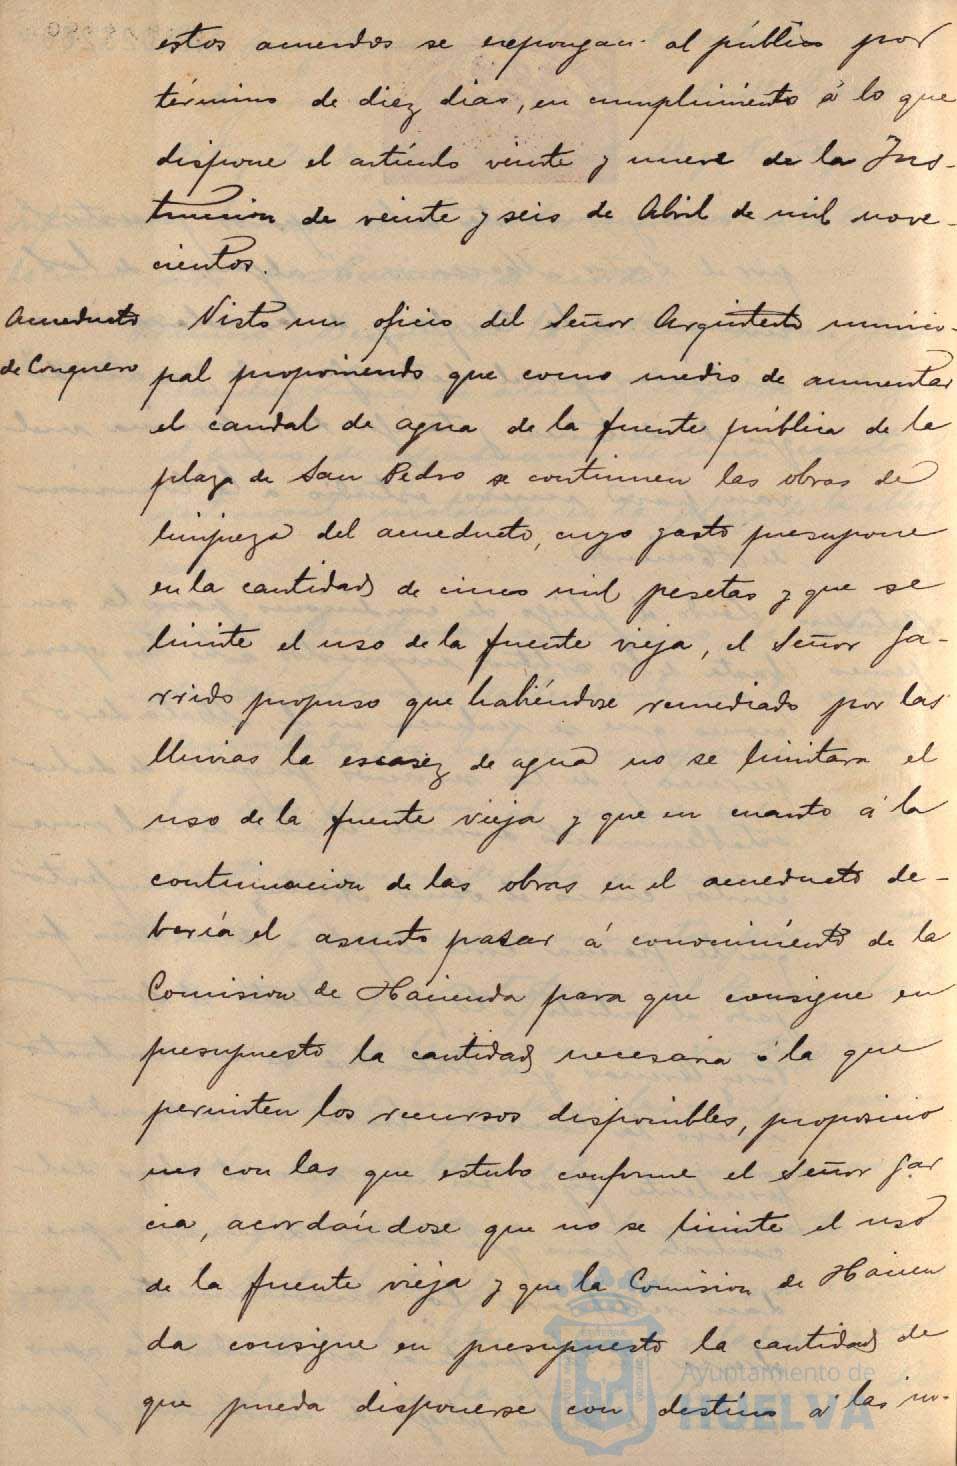 estos acuerdos se expongan al público por
término de diez dias, en cumplimiento á lo que
dispone el artículo veinte y nueve de la Ins-
truccion de veinte y seis de Abril de mil nove-
cientos.
Acueducto
de Conquero
Visto un oficio del Señor Arquitecto munici-
pal proponiendo que como medio de aumentar
el caudal de agua de la fuente pública de la
plaza de San Pedro se continuen las obras de
limpieza del acueducto, cuyo gasto presupone
en la cantidad de cinco mil pesetas y que se
limite el uso de la fuente vieja, el Señor Ga-
rrido propuso que habiéndose remediado por las
lluvias la escasez de agua no se limitara el
uso de la fuente vieja y que en cuanto á la
continuacion de las obras en el acueducto de-
beria el asunto pasar á conocimiento de la
Comision de Hacienda para que consigne en
presupuesto la cantidad necesaria ó la que
permiten los recursos disponibles, proposicio
nes con las que estubo conforme el Señor Gar
cia, acordándose que no se limite el uso
de la fuente vieja y que la Comision de Hacien
da consigne en presupuesto la cantidad de
que pueda disponerse con destino á las in-
Ayuntamiento de
HUELVA